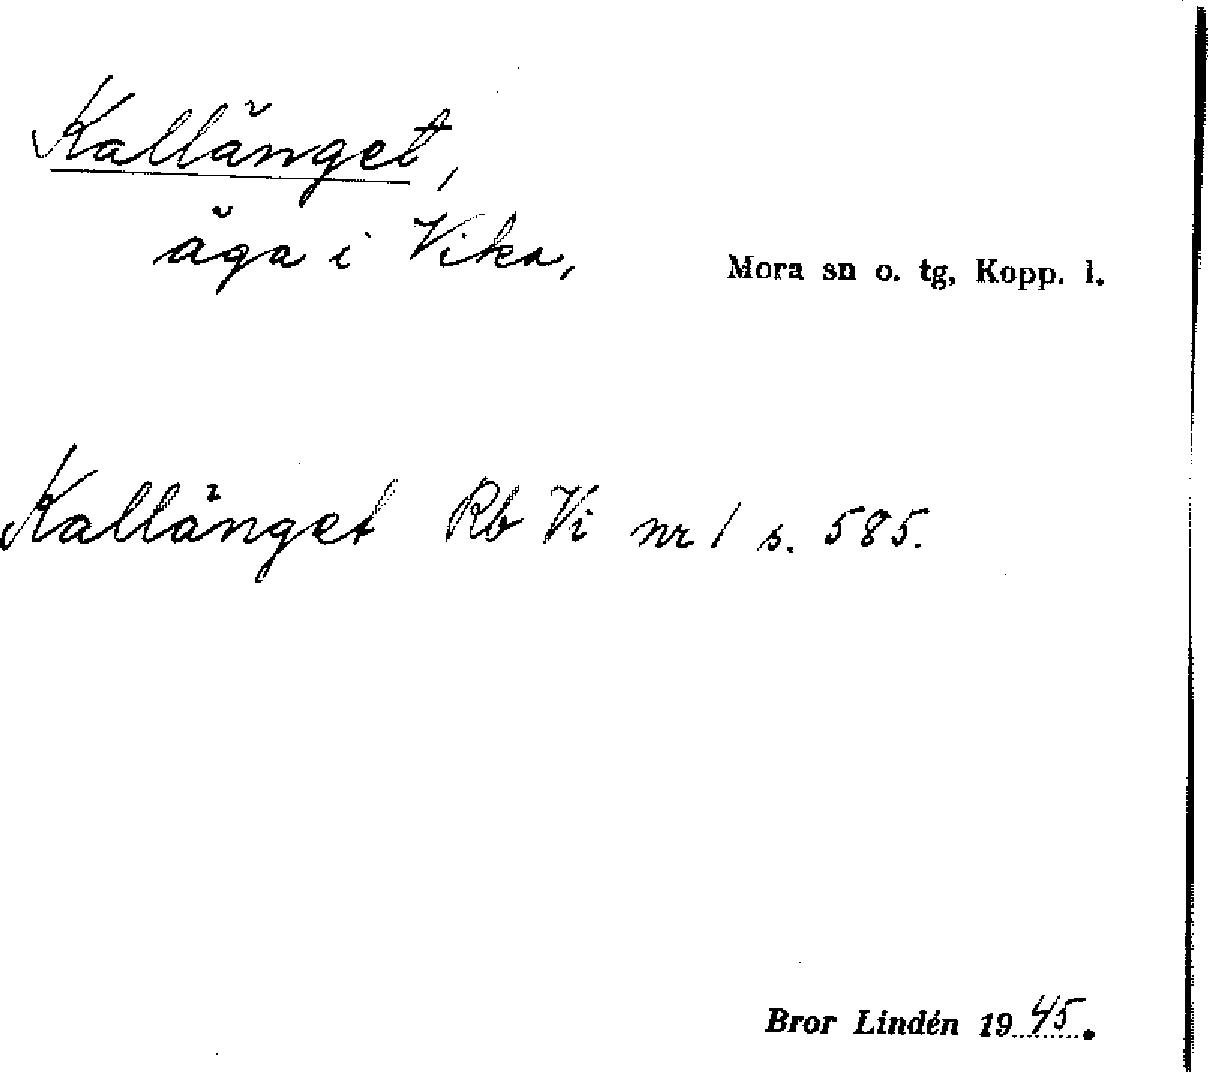 Kallänget,
äga i Vika,
Mora sn o. tg, Kopp. l.
Kallänget Rb Vi nr 1 s. 585.
Bror Lindén 1945.